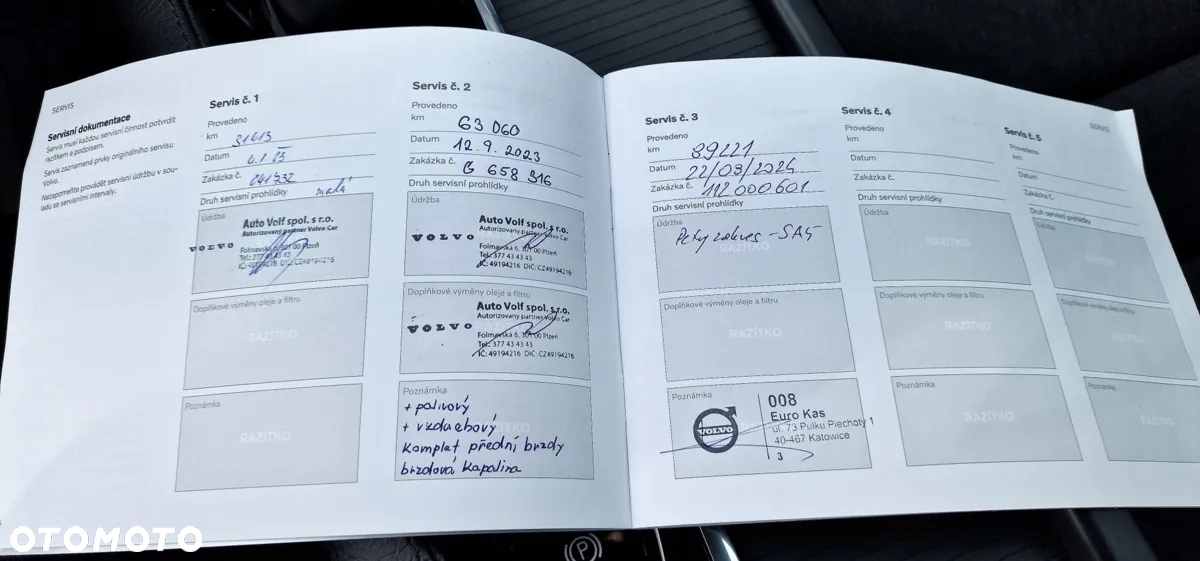 SERVIS
Servisní dokumentace
Servis musí každou servisní činnost potvrdit
razítkem a podpisem.
Servis zaznamená prvky originálního servisu
Volvo.
Nezapomeňte provádět servisní údržbu v sou-
ladu se servisními intervaly.
Servis č. 1
Provedeno
km 31413
Datum
Zakázka č. 041732
Druh servisní prohlídky malá
Údržba
VOLVO
Auto Volf spol. s r.o.
Autorizovaný partner Volvo Car
Folmavská 6, 301 00 Plzeň
Tel.: 377 43 43 43
IČ: 49194216 DIČ: CZ49194216
Doplňkové výměny oleje a filtru
RAZÍTKO
Poznámka
RAZÍTKO
Servis č. 2
Provedeno
km 63 060
Datum 12. 9. 2023
Zakázka č. G 658 316
Druh servisní prohlídky
Údržba
VOLVO
Auto Volf spol. s r.o.
Autorizovaný partner Volvo Car
Folmavská 6, 301 00 Plzeň
Tel.: 377 43 43 43
IČ: 49194216 DIČ: CZ49194216
Doplňkové výměny oleje a filtru
VOLVO
Auto Volf spol. s r.o.
Autorizovaný partner Volvo Car
Folmavská 6, 301 00 Plzeň
Tel.: 377 43 43 43
IČ: 49194216 DIČ: CZ49194216
Poznámka
+ palivový
+ vzduchový
komplet přední brzdy
brzdová kapalina
Servis č. 3
Provedeno
km 89221
Datum 22/08/2024
Zakázka č. 112000601
Druh servisní prohlídky
Údržba
Pełny zakres - SA5
RAZÍTKO
Doplňkové výměny oleje a filtru
RAZÍTKO
Poznámka
VOLVO
008
Euro Kas
ul. 73 Pułku Piechoty 1
40-467 Katowice
3
Servis č. 4
Provedeno
km
Datum
Zakázka č.
Druh servisní prohlídky
Údržba
RAZÍTKO
Doplňkové výměny oleje a filtru
RAZÍTKO
Poznámka
RAZÍTKO
SERVIS
Servis č. 5
Provedeno
km
Datum
Zakázka č.
Druh servisní prohlídky
Údržba
RAZÍTKO
Doplňkové výměny oleje a filtru
RAZÍTKO
Poznámka
RAZÍTKO
P
OTOMOTO